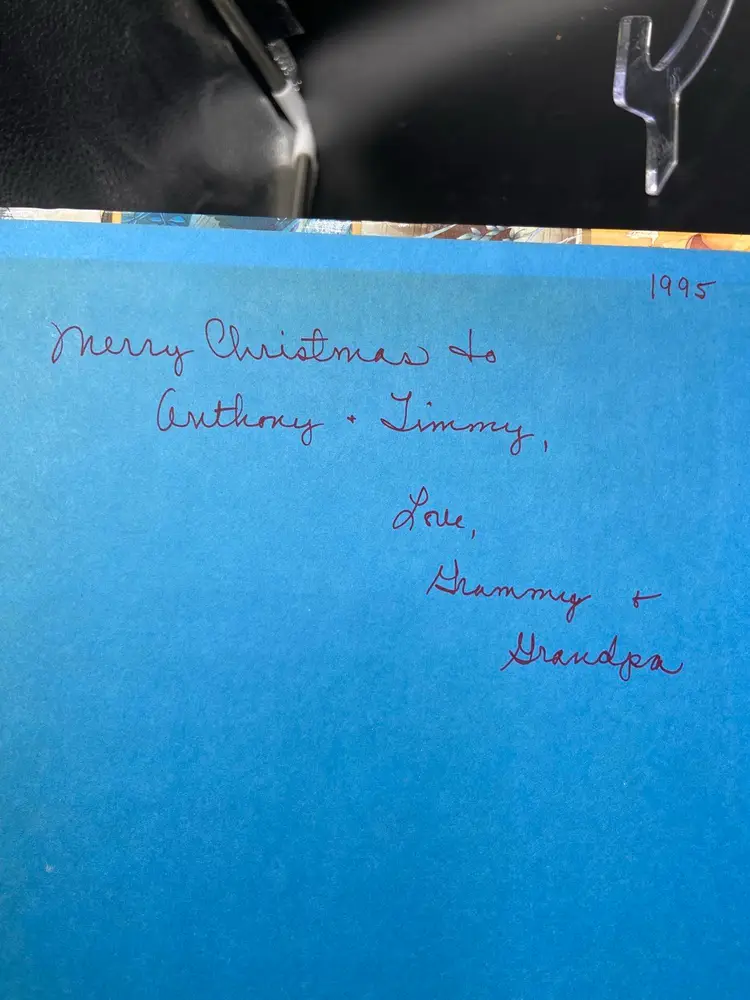 1995
Merry Christmas to
Anthony + Timmy,
Love,
Grammy +
Grandpa